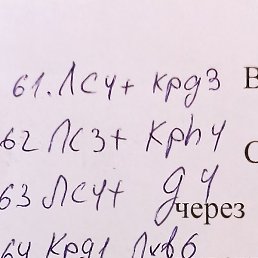 61. ЛС4+ Крд3 В
62 ЛС3+ Крh4 С
63 ЛС4+ g4
через
64 Крд1 Лхв6